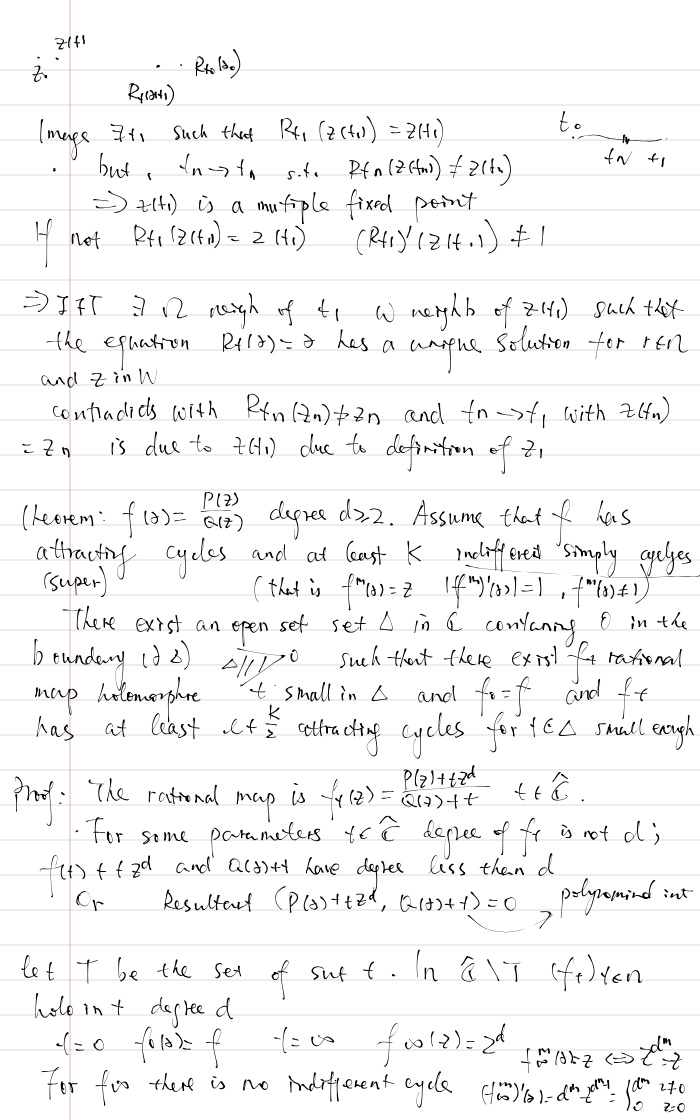 z(t)
z. . . Rt0(z0)
Rt(z(t))
Image ∃t1 such that Rt1(z(t1)) = z(t1)
t0
. but, tn→t1 s.t. Rtn(z(tn)) ≠ z(tn)
tn t1
=> z(t1) is a mutiple fixed point
If not Rt1(z(t1)) = z(t1) (Rt1)'(z(t1)) ≠ 1
=> IFT ∃ Ω neigh of t1 W neighb of z(t1) such that
the equation Rt(z)=z has a unique solution for t∈Ω
and z in W
contradicts with Rtn(zn)≠zn and tn→t1 with z(tn)
= zn is due to z(t1) due to definition of z1
Theorem: f(z) = P(z)/Q(z) degree d≥2. Assume that f has
attracting cycles and at least K indifferent simply cycles
(super) (that is f^m(z)=z |(f^m)'(z)|=1, f^m(z)≠1)
There exist an open set set Δ in ℂ contaning 0 in the
boundary (∂Δ) Δ 0 such that there exist ft rational
map holomorphic t small in Δ and f0=f and ft
has at least l+K/2 attracting cycles for t∈Δ small enough
Proof: The rational map is ft(z) = (P(z)+tz^d)/(Q(z)+t) t∈Ĉ.
. For some parameters t∈Ĉ degree of ft is not d;
f(t)+tz^d and Q(z)+t have degree less than d
Or Resultant (P(z)+tz^d, Q(z)+t)=0 polynomial in t
let T be the set of such t. In Ĉ\T (ft)t∈n
holo in t degree d
t=0 f0(z)=f t=∞ f∞(z)=z^d f∞^m(z)=z <=> z^d^m=z
For f∞ there is no indifferent cycle (f∞^m)'(z)=d^m z^d^m-1={d^m z≠0
0 z=0